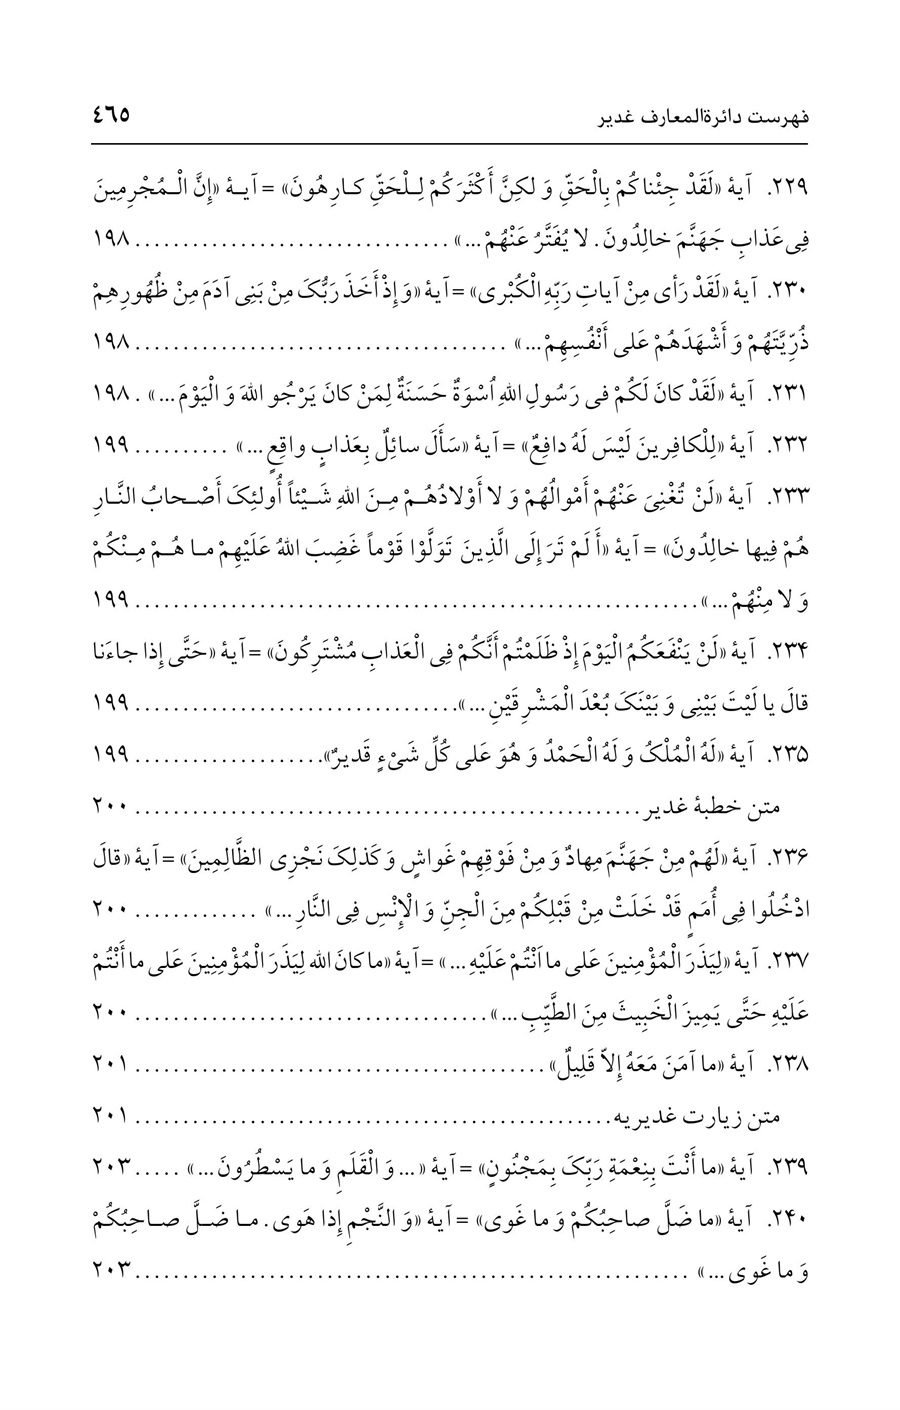 فهرست دائرةالمعارف غدیر ٤٦٥
٢٢٩. آیهٔ «لَقَدْ جِئْناکُمْ بِالْحَقِّ وَ لکِنَّ أَکْثَرَکُمْ لِـلْحَقِّ کـارِهُونَ» = آیـهٔ «إِنَّ الْـمُجْرِمِینَ
فِی عَذابِ جَهَنَّمَ خالِدُونَ. لا یُفَتَّرُ عَنْهُمْ...» ................................ ١٩٨
٢٣٠. آیهٔ «لَقَدْ رَأی مِنْ آیاتِ رَبِّهِ الْکُبْری» = آیهٔ «وَ إِذْ أَخَذَ رَبُّکَ مِنْ بَنِی آدَمَ مِنْ ظُهُورِهِمْ
ذُرِّیَّتَهُمْ وَ أَشْهَدَهُمْ عَلی أَنْفُسِهِمْ...» ...................................... ١٩٨
٢٣١. آیهٔ «لَقَدْ کانَ لَکُمْ فی رَسُولِ اللهِ اُسْوَةٌ حَسَنَةٌ لِمَنْ کانَ یَرْجُو اللهَ وَ الْیَوْمَ...» . ١٩٨
٢٣٢. آیهٔ «لِلْکافِرینَ لَیْسَ لَهُ دافِعٌ» = آیهٔ «سَأَلَ سائِلٌ بِعَذابٍ واقِعٍ...» .......... ١٩٩
٢٣٣. آیهٔ «لَنْ تُغْنِیَ عَنْهُمْ أَمْوالُهُمْ وَ لا أَوْلادُهُـمْ مِـنَ اللهِ شَـیْئاً أُولئِکَ أَصْـحابُ النَّـارِ
هُمْ فِیها خالِدُونَ» = آیهٔ «أَ لَمْ تَرَ إِلَی الَّذِینَ تَوَلَّوْا قَوْماً غَضِبَ اللهُ عَلَیْهِمْ مـا هُـمْ مِـنْکُمْ
وَ لا مِنْهُمْ...» .......................................................... ١٩٩
٢٣٤. آیهٔ «لَنْ یَنْفَعَکُمُ الْیَوْمَ إِذْ ظَلَمْتُمْ أَنَّکُمْ فِی الْعَذابِ مُشْتَرِکُونَ» = آیهٔ «حَتَّی إِذا جاءَنا
قالَ یا لَیْتَ بَیْنِی وَ بَیْنَکَ بُعْدَ الْمَشْرِقَیْنِ...» ................................. ١٩٩
٢٣٥. آیهٔ «لَهُ الْمُلْکُ وَ لَهُ الْحَمْدُ وَ هُوَ عَلی کُلِّ شَیْءٍ قَدیرٌ» .................... ١٩٩
متن خطبهٔ غدیر .................................................... ٢٠٠
٢٣٦. آیهٔ «لَهُمْ مِنْ جَهَنَّمَ مِهادٌ وَ مِنْ فَوْقِهِمْ غَواشٍ وَ کَذلِکَ نَجْزِی الظَّالِمِینَ» = آیهٔ «قالَ
ادْخُلُوا فِی أُمَمٍ قَدْ خَلَتْ مِنْ قَبْلِکُمْ مِنَ الْجِنِّ وَ الْإِنْسِ فِی النَّارِ...» ............. ٢٠٠
٢٣٧. آیهٔ «لِیَذَرَ الْمُؤْمِنینَ عَلی ما اَنْتُمْ عَلَیْهِ...» = آیهٔ «ما کانَ الله لِیَذَرَ الْمُؤْمِنِینَ عَلی ما أَنْتُمْ
عَلَیْهِ حَتَّی یَمِیزَ الْخَبِیثَ مِنَ الطَّیِّبِ...» .................................... ٢٠٠
٢٣٨. آیهٔ «ما آمَنَ مَعَهُ إِلاّ قَلِیلٌ» .......................................... ٢٠١
متن زیارت غدیریه ................................................. ٢٠١
٢٣٩. آیهٔ «ما أَنْتَ بِنِعْمَةِ رَبِّکَ بِمَجْنُونٍ» = آیهٔ «... وَ الْقَلَمِ وَ ما یَسْطُرُونَ...» ..... ٢٠٣
٢٤٠. آیهٔ «ما ضَلَّ صاحِبُکُمْ وَ ما غَوی» = آیهٔ «وَ النَّجْمِ إِذا هَوی. مـا ضَـلَّ صـاحِبُکُمْ
وَ ما غَوی...» ......................................................... ٢٠٣